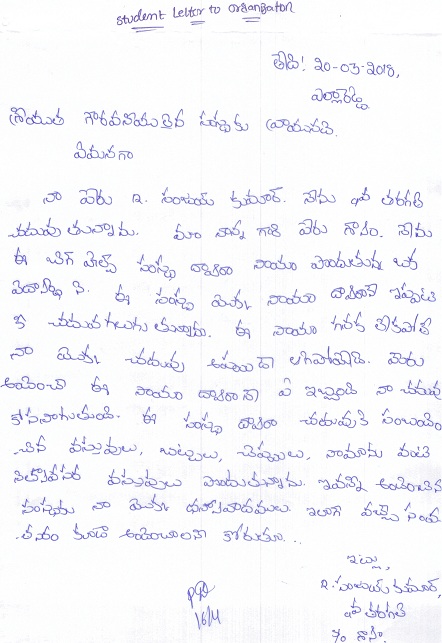 student Letter to organgation
తేది! 20-03-2018,
ఎల్లారెడ్డి
శ్రీయుత గౌరవనీయులైన సంస్థకు వ్రాయునది.
ఏమనగా
నా పేరు R. సంజయ్ కుమార్. నేను 9వ తరగతి
చదువు తున్నాను. మా నాన్న గారి పేరు రాజు. నేను
ఈ బిగ్ హెల్ప్ సంస్థ ద్వారా సాయం పొందుతున్న ఒక
విద్యార్థి ని. ఈ సంస్థ యొక్క సాయం ద్వారానే ఇప్పటి
కి చదువగలుగు తున్నాను. ఈ సాయం గనక లేకపోతే
నా యొక్క చదువు ఆగిపోయేది. మీరు
అందించే ఈ సాయం ద్వారానే ఇప్పుడు నా చదువు
కొనసాగుతుంది. ఈ సంస్థ ద్వారా చదువుకి సంబంధిం
చిన వస్తువులు, బట్టలు, చెప్పులు, సామాను వంటి
నిత్యావసర వస్తువులు పొందుతున్నాను. ఇవన్నీ అందించిన
సంస్థకు నా యొక్క ధన్యవాదములు. ఇలాగే వచ్చే సంవ
త్సరం కూడా అందించాలని కోరుతూ...
ఇట్లు,
R. సంజయ్ కుమార్,
9వ తరగతి
S/o రాజు.
16/4